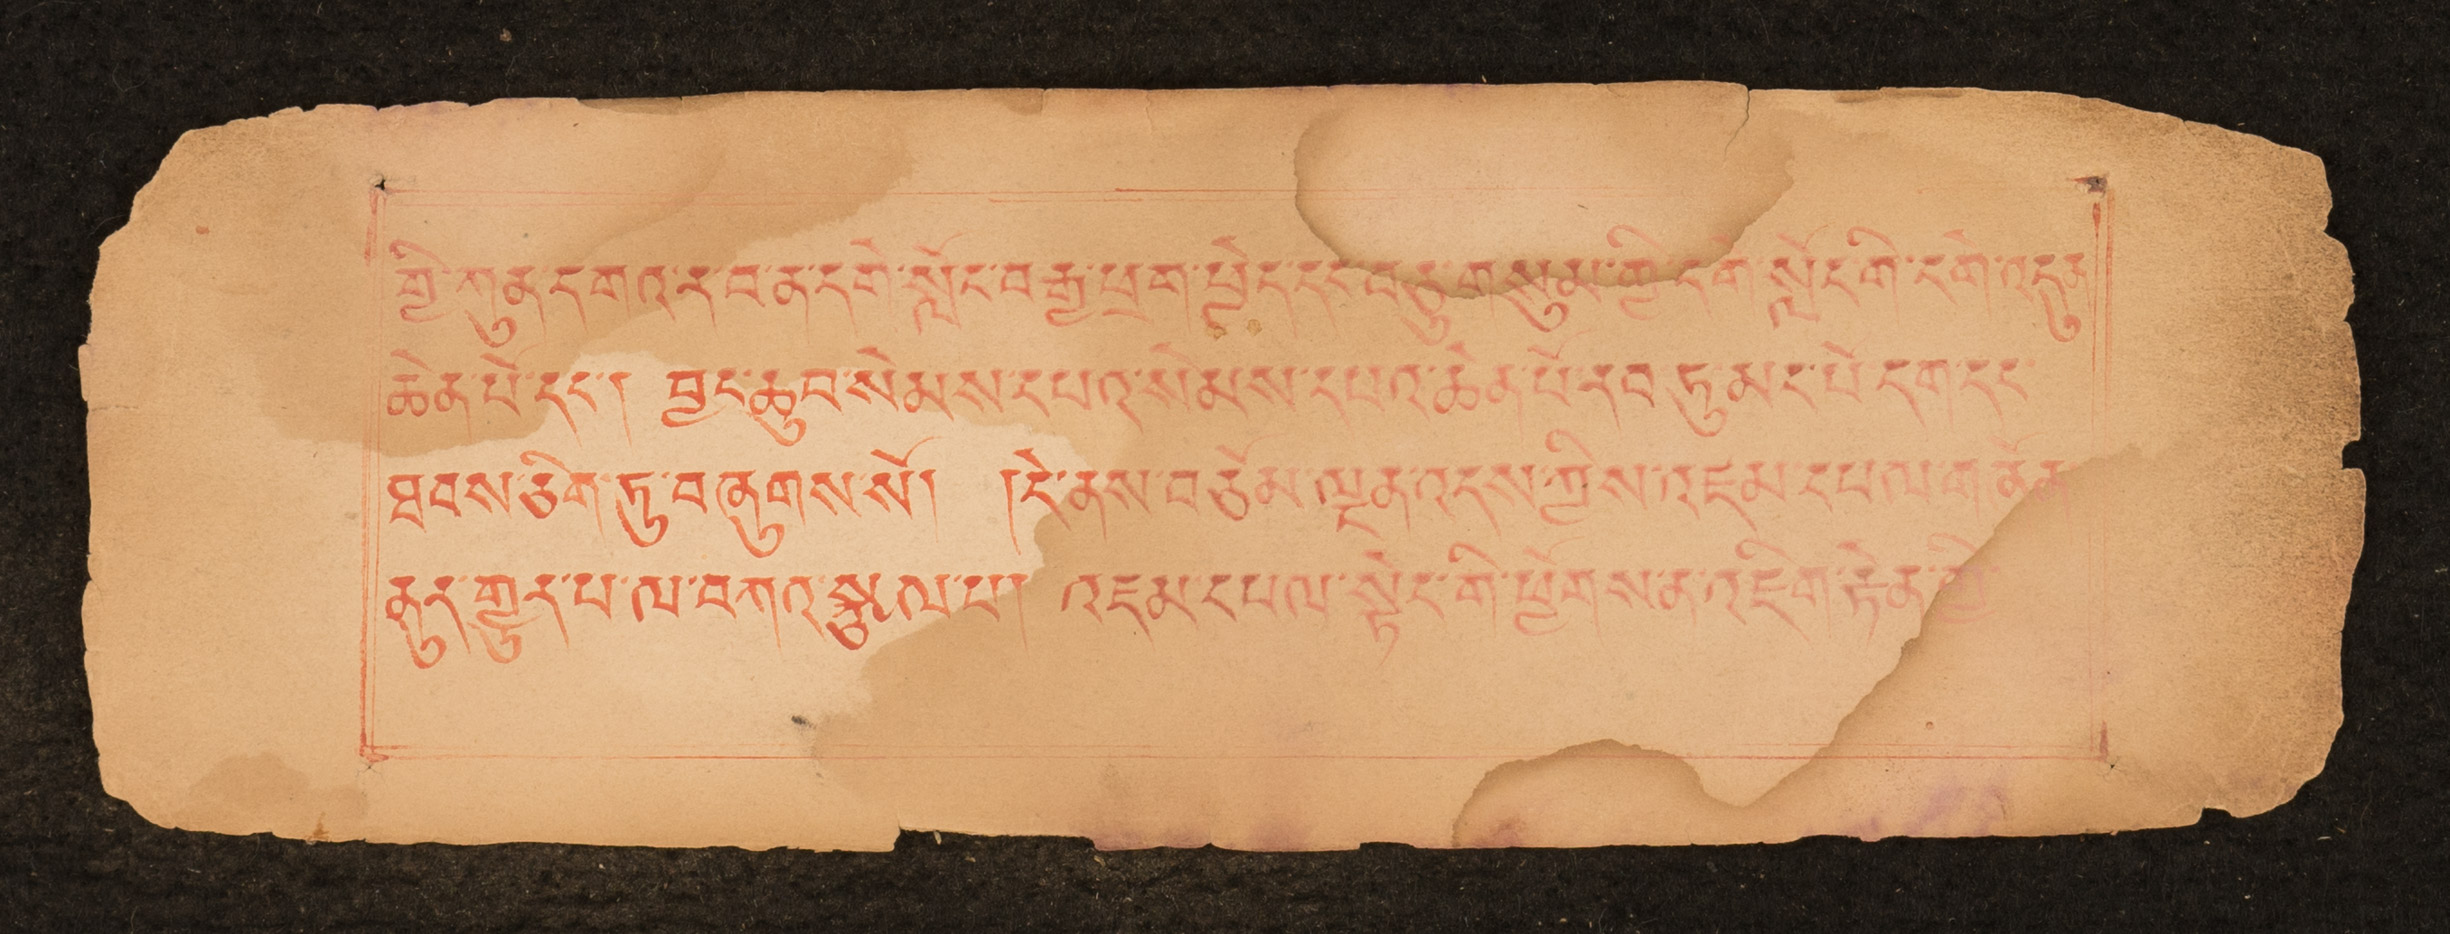 གྱི་ཀུན་དགའ་ར་བ་ན་དགེ་སློང་བརྒྱ་ཕྲག་ཕྱེད་དང་བཅུ་གསུམ་གྱི་དགེ་སློང་གི་དགེ་འདུན
ཆེན་པོ་དང་། བྱང་ཆུབ་སེམས་དཔའ་སེམས་དཔའ་ཆེན་པོ་རབ་ཏུ་མང་པོ་དག་དང་
ཐབས་ཅིག་ཏུ་བཞུགས་སོ། །དེ་ནས་བཅོམ་ལྡན་འདས་ཀྱིས་འཇམ་དཔལ་གཞོན
ནུར་གྱུར་པ་ལ་བཀའ་སྩལ་པ། འཇམ་དཔལ་སྟེང་གི་ཕྱོགས་ན་འཇིག་རྟེན་གྱི་